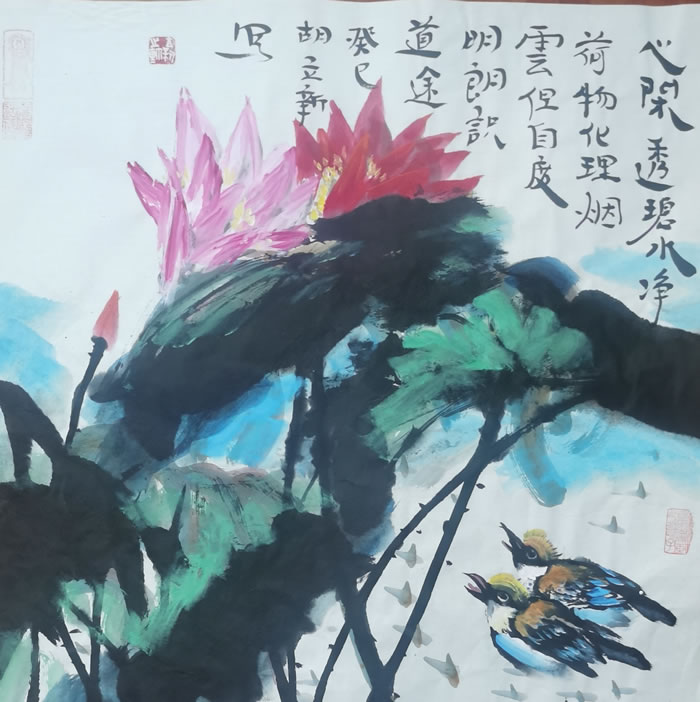 心閑透碧水净
荷物化理烟
雲但自度
明朗識
道途
癸巳
胡立新
写